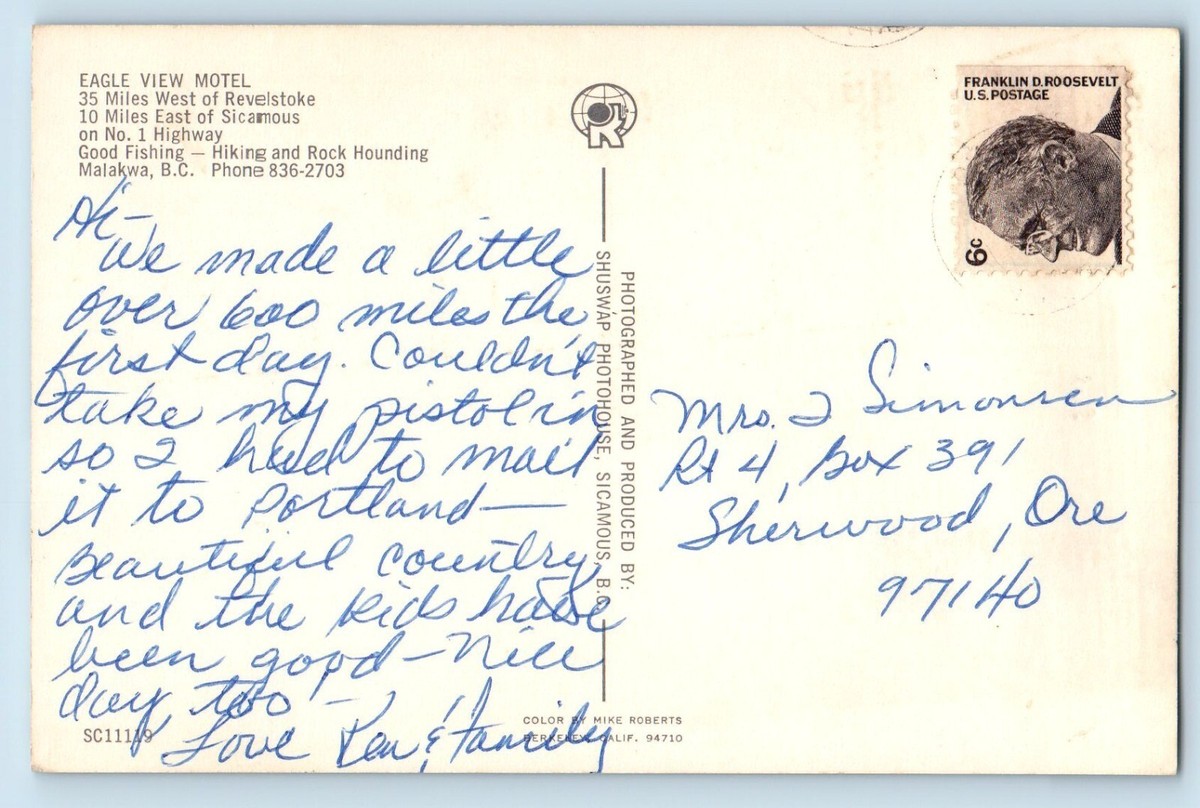 EAGLE VIEW MOTEL
35 Miles West of Revelstoke
10 Miles East of Sicamous
on No. 1 Highway
Good Fishing — Hiking and Rock Hounding
Malakwa, B.C. Phone 836-2703
Hi-
We made a little
over 600 miles the
first day. Couldn't
take my pistol in
so I had to mail
it to Portland—
Beautiful country
and the kids have
been good — Nice
day too —
Love Ken & Family
SC11119
R
PHOTOGRAPHED AND PRODUCED BY:
SHUSWAP PHOTOHOUSE, SICAMOUS, B.C.
COLOR BY MIKE ROBERTS
BERKELEY, CALIF. 94710
FRANKLIN D. ROOSEVELT
U.S. POSTAGE
6c
Mrs. I Simonsen
Rt 4, Box 391
Sherwood, Ore
97140